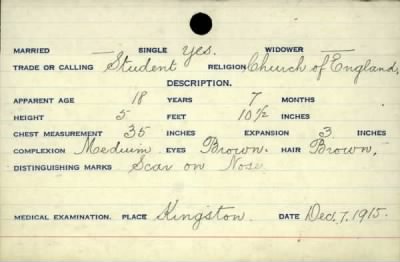 MARRIED — SINGLE Yes. WIDOWER —
TRADE OR CALLING Student RELIGION Church of England,
DESCRIPTION.
APPARENT AGE 18 YEARS 7 MONTHS
HEIGHT 5 FEET 10½ INCHES
CHEST MEASUREMENT 35 INCHES EXPANSION 3 INCHES
COMPLEXION Medium EYES Brown. HAIR Brown,
DISTINGUISHING MARKS Scar on Nose
MEDICAL EXAMINATION. PLACE Kingston. DATE Dec. 7. 1915.